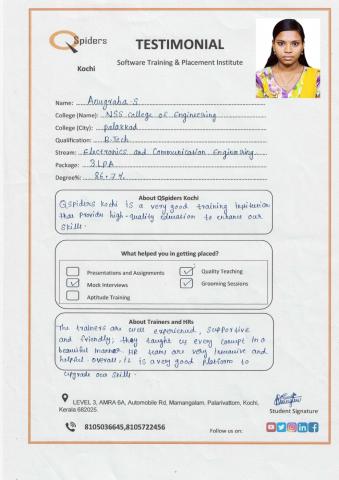 QSpiders
Kochi
TESTIMONIAL
Software Training & Placement Institute
Name: Anugraha S
College (Name): NSS College of Engineering
College (City): palakkad
Qualification: B.Tech
Stream: Electronics and Communication Engineering
Package: 3LPA
Degree%: 86.7%
About QSpiders Kochi
QSpiders kochi is a very good training institution
that provide high-quality education to enhance our
skills.
What helped you in getting placed?
Presentations and Assignments
Quality Teaching
Mock Interviews
Grooming Sessions
Aptitude Training
About Trainers and HRs
The trainers are well experienced, supportive
and friendly; they taught us every concept in a
beautiful manner. HR team are very interactive and
helpful. overall, it is a very good platform to
upgrade our skills.
LEVEL 3, AMRA 6A, Automobile Rd, Mamangalam, Palarivattom, Kochi,
Kerala 682025.
Student Signature
8105036645,8105722456
Follow us on: